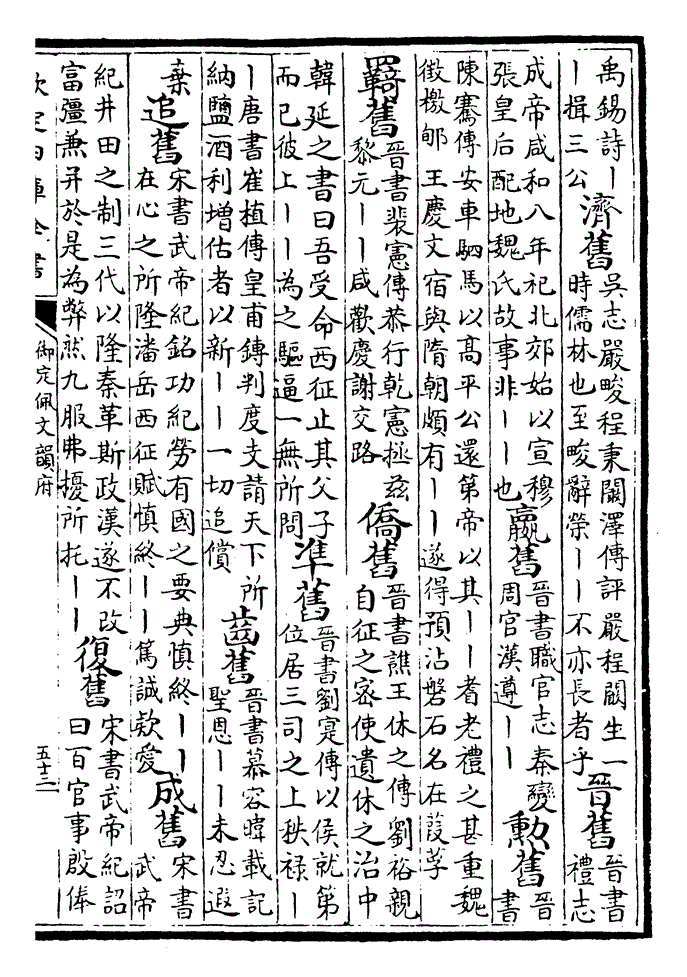 禹錫詩｜
｜揖三公
濟舊
吳志嚴畯程秉闞澤傳評嚴程闞生一
時儒林也至畯辭榮｜｜不亦長者乎
晉舊
晉書
禮志
成帝咸和八年祀北郊始以宣穆
張皇后配地魏氏故事非｜｜也
嬴舊
晉書職官志秦變
周官漢遵｜｜
勲舊
晉
書
陳騫傳安車駟馬以高平公還第帝以其｜｜耆老禮之甚重魏
徴檄郇王慶文宿與隋朝頗有｜｜遂得預沾磐石名在葭莩
羇舊
晉書裴憲傳恭行乾憲拯兹
黎元｜｜咸歡慶謝交路
僑舊
晉書譙王休之傳劉裕親
自征之宻使遺休之治中
韓延之書曰吾受命西征止其父子
而已彼上｜｜為之驅逼一無所問
準舊
晉書劉寔傳以侯就第
位居三司之上秩禄｜
｜唐書崔植傳皇甫鏄判度支請天下所
納鹽酒利增估者以新｜｜一切追償
齒舊
晉書慕容暐載記
聖恩｜｜未忍遐
棄
追舊
宋書武帝紀銘功紀勞有國之要典慎終｜｜
在心之所隆潘岳西征賦慎終｜｜篤誠欵愛
成舊
宋書
武帝
紀井田之制三代以隆秦革斯政漢遂不改
富彊兼并於是為弊然九服弗擾所托｜｜
復舊
宋書武帝紀詔
曰百官事殷俸
欽定四庫全書
御定佩文韻府
五十三